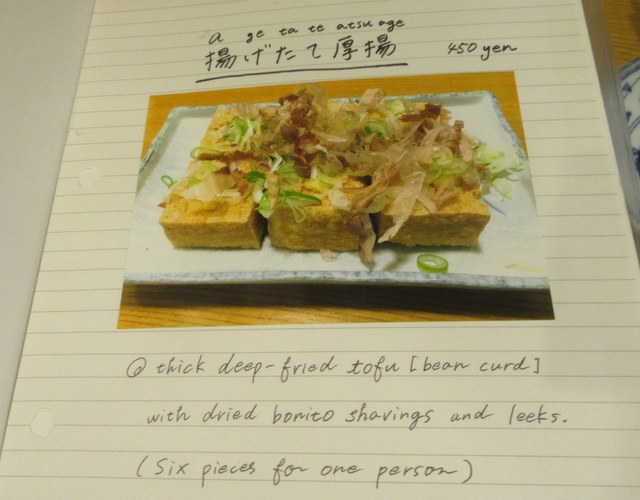 a ge ta te atsu age
揚げたて厚揚 450 yen
@ thick deep-fried tofu [bean curd]
with dried bonito shavings and leeks.
(Six pieces for one person)